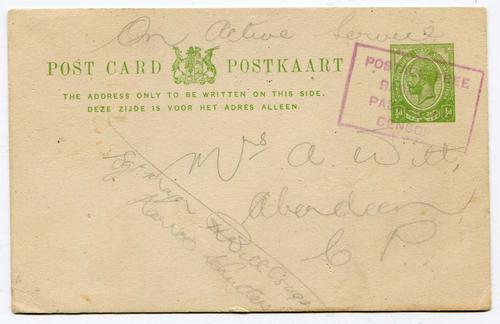 On Active Service
POST CARD POSTKAART
THE ADDRESS ONLY TO BE WRITTEN ON THIS SIDE.
DEZE ZIJDE IS VOOR HET ADRES ALLEEN.
POST FREE
PASSED
CENSOR
½d ½d
Mrs A Witt
Aberdeen
C P.
Major
Karroo